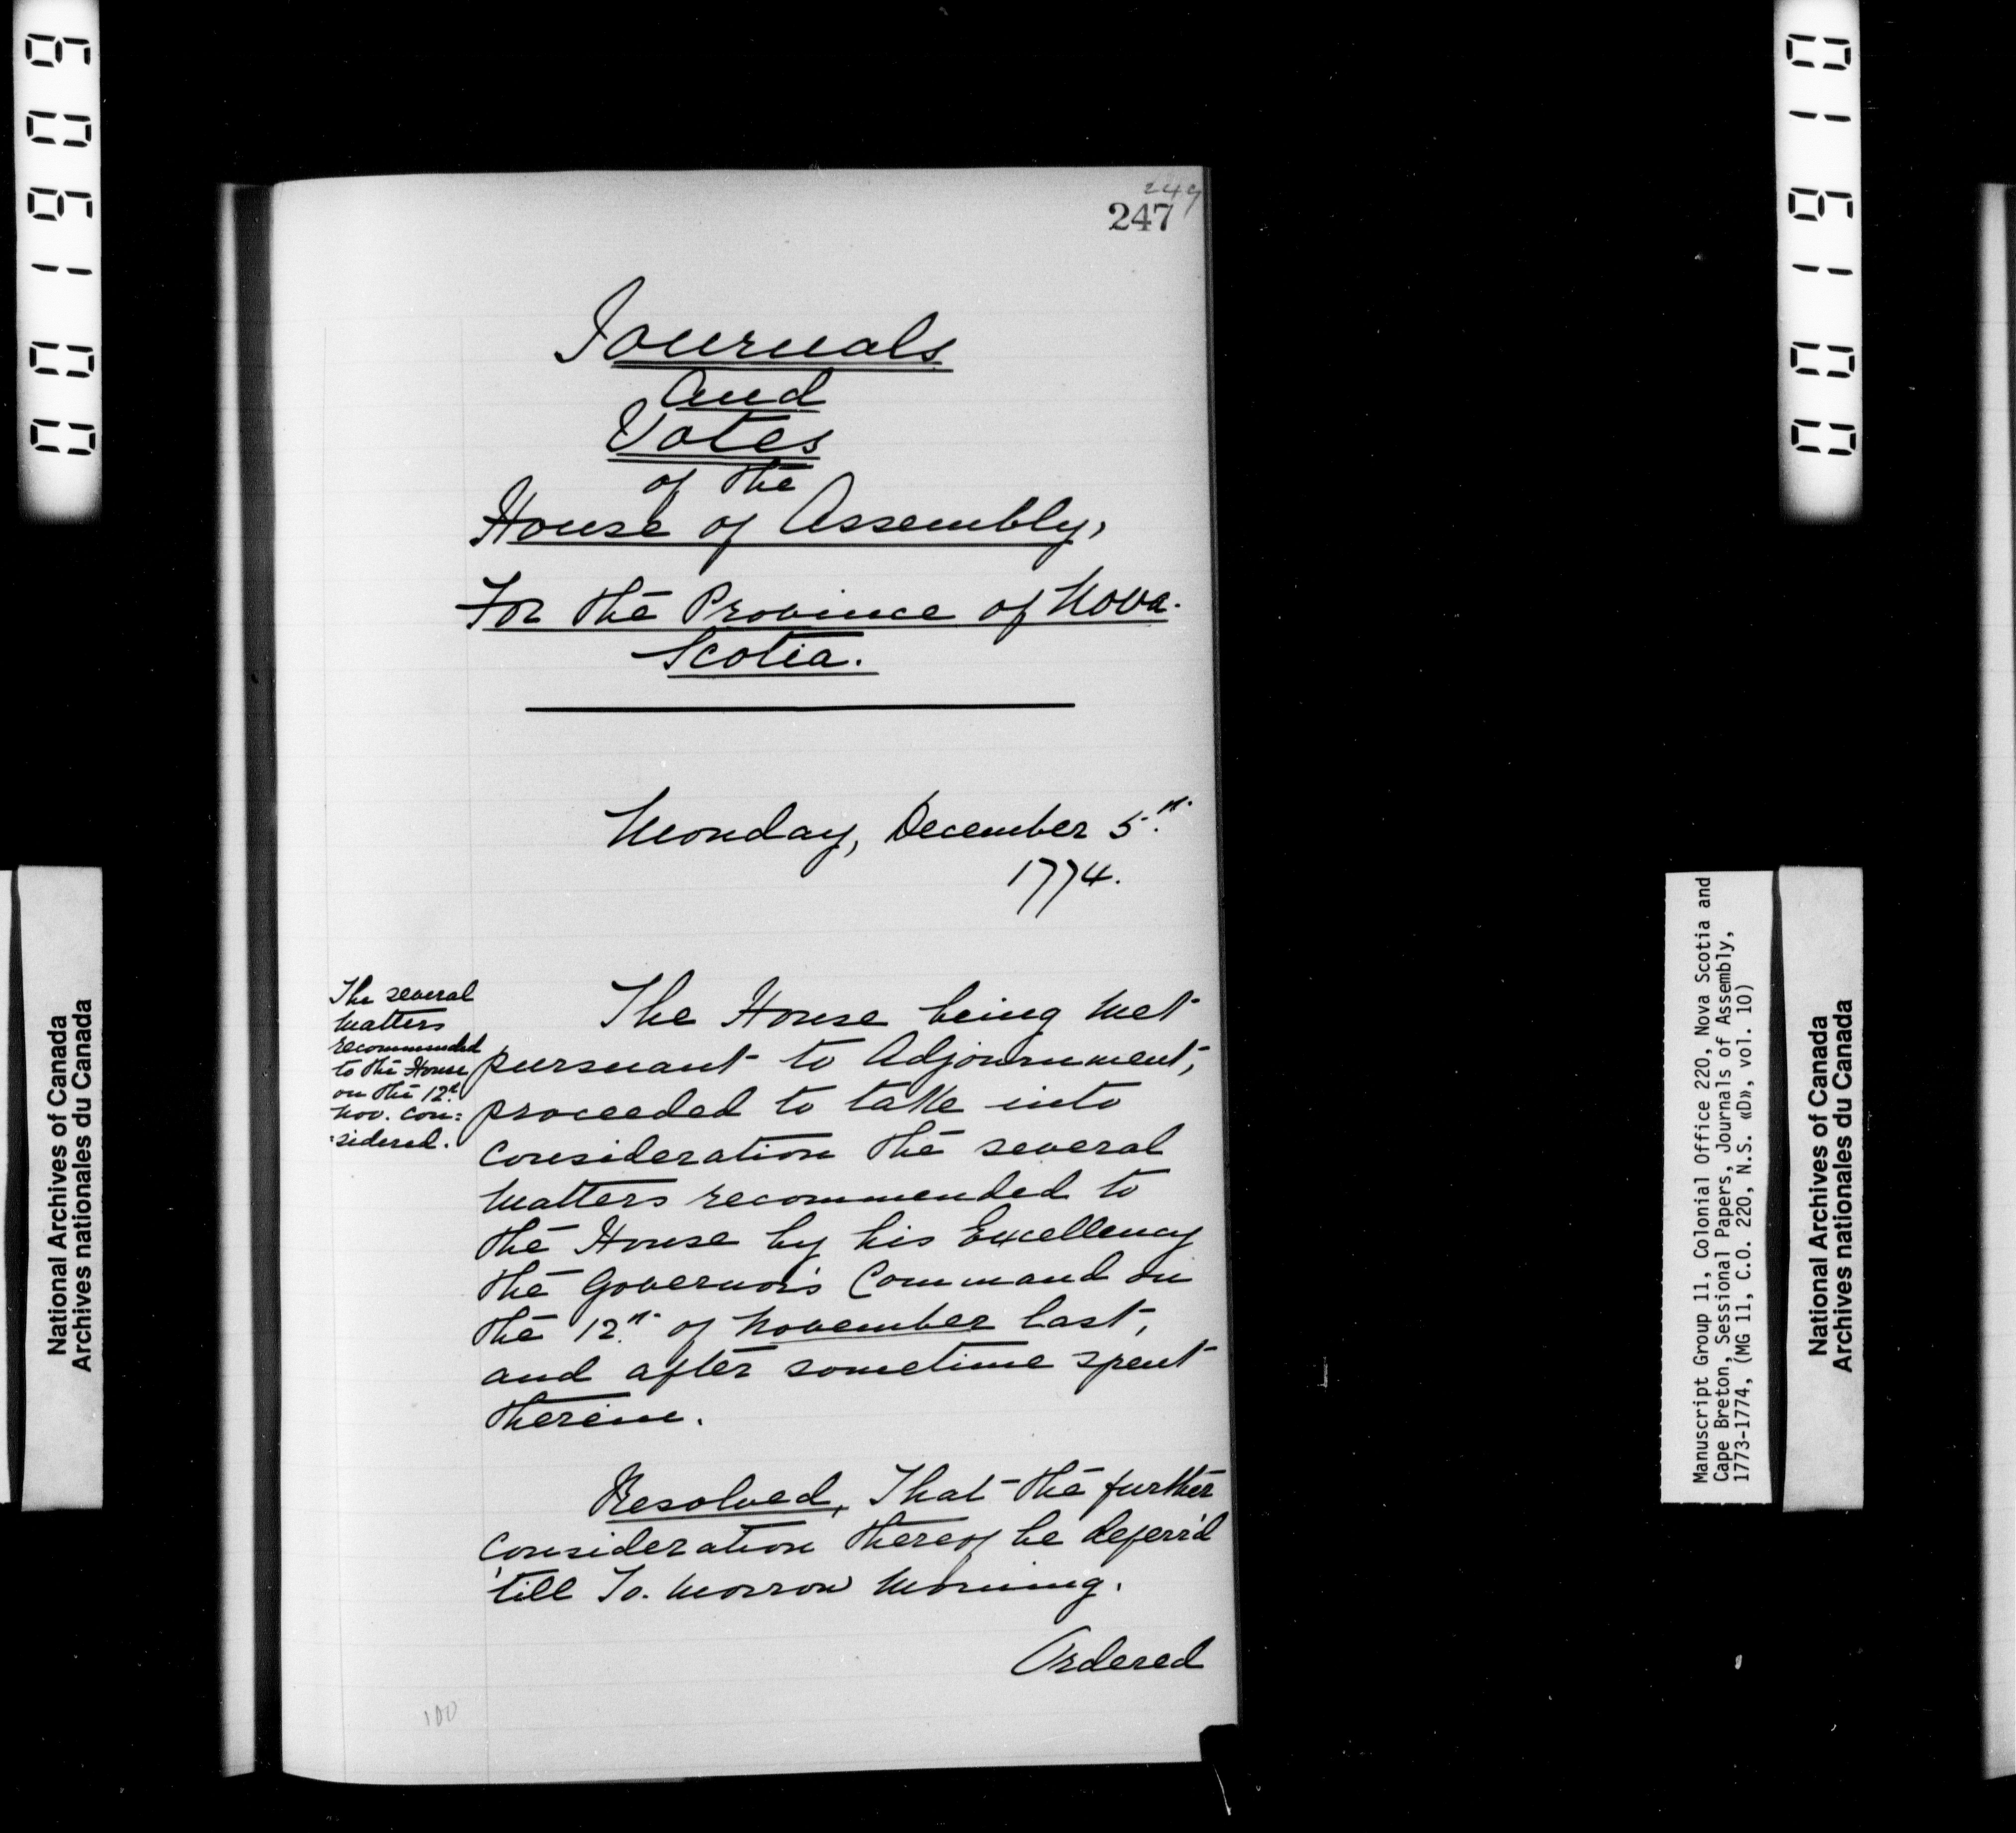 001909
001910
249
247
Journals
and
Votes
of the
House of Assembly,
For the Province of Nova-
Scotia.
Monday, December 5.th
1774.
The several
matters
recommended
to the House
on the 12.th
Nov. con:
:sidered.
The House being met
pursuant to Adjournment,
proceeded to take into
consideration the several
matters recommended to
the House by his Excellency
the Governor's Command on
the 12.th of November last,
and after sometime spent
therein.
Resolved, That the further
consideration thereof be deferr'd
'till To-morrow Morning.
Ordered
100
National Archives of Canada
Archives nationales du Canada
Manuscript Group 11, Colonial Office 220, Nova Scotia and
Cape Breton, Sessional Papers, Journals of Assembly,
1773-1774, (MG 11, C.O. 220, N.S. «D», vol. 10)
National Archives of Canada
Archives nationales du Canada